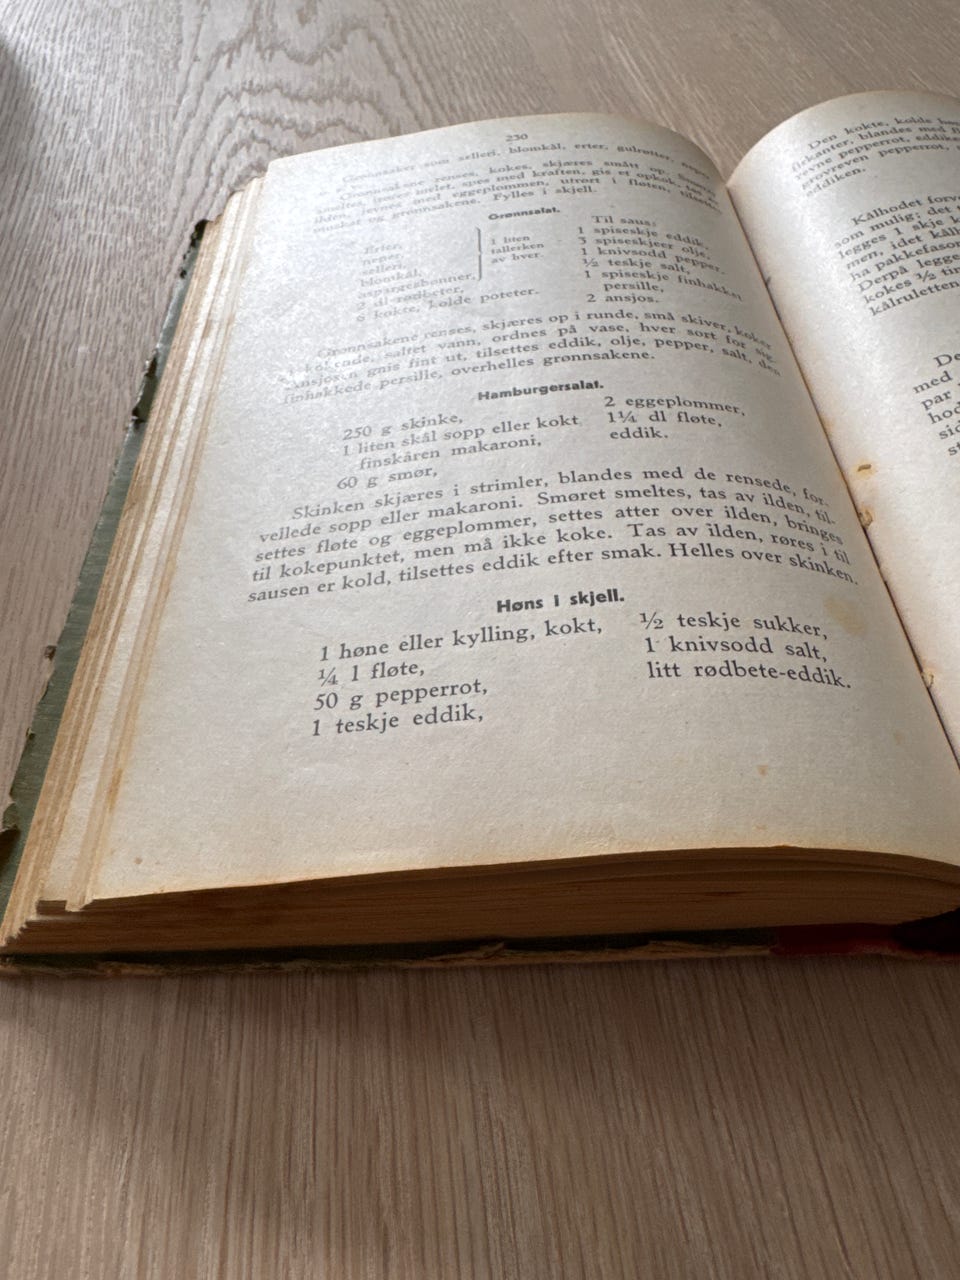 230
Grønnsaker som selleri, blomkål, erter, gulrøtter, neper
Grønnsakene renses, kokes, skjæres smått op. Smøret
smeltes, røres melet, spes med kraften, gis et opkok, tas av
ilden, jevnes med eggeplommen, utrørt i fløten, tilsettes
muskat og grønnsakene. Fylles i skjell.
Grønnsalat.
Erter,
neper,
selleri,
blomkål,
aspargesbønner,
2 dl rødbeter,
6 kokte, kolde poteter.
1 liten
tallerken
av hver.
Til saus:
1 spiseskje eddik,
3 spiseskjeer olje,
1 knivsodd pepper,
½ teskje salt,
1 spiseskje finhakket
persille,
2 ansjos.
Grønnsakene renses, skjæres op i runde, små skiver, kokes
i kokende, saltet vann, ordnes på vase, hver sort for sig.
Ansjosen gnis fint ut, tilsettes eddik, olje, pepper, salt, den
finhakkede persille, overhelles grønnsakene.
Hamburgersalat.
250 g skinke,
1 liten skål sopp eller kokt
finskåren makaroni,
60 g smør,
2 eggeplommer,
1¼ dl fløte,
eddik.
Skinken skjæres i strimler, blandes med de rensede, for-
vellede sopp eller makaroni. Smøret smeltes, tas av ilden, til-
settes fløte og eggeplommer, settes atter over ilden, bringes
til kokepunktet, men må ikke koke. Tas av ilden, røres i til
sausen er kold, tilsettes eddik efter smak. Helles over skinken.
Høns i skjell.
1 høne eller kylling, kokt,
¼ l fløte,
50 g pepperrot,
1 teskje eddik,
½ teskje sukker,
1 knivsodd salt,
litt rødbete-eddik.
Den kokte, kolde
fiskanter, blandes med
revne pepperrot, eddik
grovreven pepperrot,
eddiken.
Kålhodet
som mulig; det
legges 1 skje
men, idet
ha pakkefason
Derpå legges
kokes ½
kålruletten
med
par